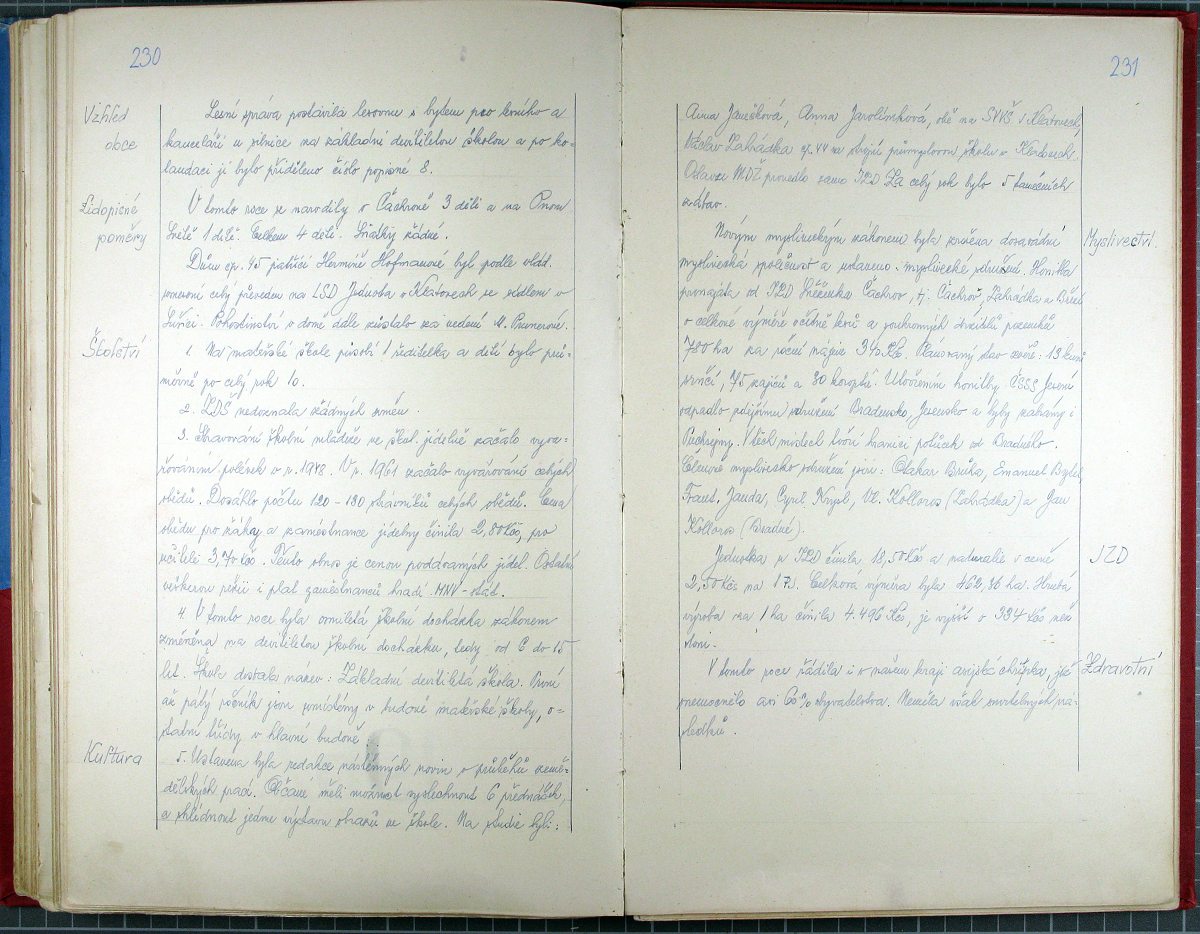 230
Vzhled
obce
Lesní správa postavila lesovnu s bytem pro lesního a
kanceláří u silnice na základní devítiletou školou a po ko-
laudaci jí bylo přiděleno číslo popisné 8.
Lidopisné
poměry
V tomto roce se narodily v Čachrově 3 děti a na
1 dítě. Celkem 4 děti. Sňatky žádné.
Dům čp. 45 patřící Hermíně Hofmanové byl podle vlád.
usnesení celý převeden na LSD Jednota v Klatovech se sídlem v
Sušici. Pohostinství v domě dále zůstalo za vedení M.
Školství
1. Na mateřské škole působí 1 ředitelka a dětí bylo prů-
měrně po celý rok 10.
2. ZDŠ nedoznala žádných změn.
3. Stravování školní mládeže ve škol. jídelně začalo vyva-
řováním polévek v r. 1948. V r. 1961 začalo vyvařování celých
obědů. Dosáhlo počtu 120 - 130 strávníků celých obědů. Cena
obědu pro žáky a zaměstnance jídelny činila 2,80 Kčs, pro
učitele 3,70 Kčs. Tento obnos je cenou podávaných jídel. Ostatní
veškerou režii i plat zaměstnanců hradí MNV - stát.
4. V tomto roce byla osmiletá školní docházka zákonem
změněna na devítiletou školní docházku, tedy od 6 do 15
let. Škola dostala název: Základní devítiletá škola. První
až pátý ročník jsou umístěny v budově mateřské školy, o-
statní třídy v hlavní budově.
Kultura
5. Ustavena byla redakce nástěnných novin o průběhu země-
dělských prací. Občané měli možnost vyslechnout 6 přednášek,
a shlédnout jednu výstavu obrazů ve škole. Na studie byli:
231
Anna Janečková, Anna Jarolímková, obě na SVVŠ v Klatovech,
Václav Zahrádka čp. 44 na strojní průmyslovou školu v Klatovech.
Oslavu MDŽ provedlo samo JZD Za celý rok bylo 5 tanečních
zábav.
Myslivectví.
Novým mysliveckým zákonem byla zrušena dosavadní
myslivecká společnost a ustaveno myslivecké sdružení. Honitba
pronajata od JZD Čachrov, tj. Čachrov, Zahrádka a
o celkové výměře včetně lesů a soukromých držitelů pozemků
780 ha za roční nájem 340 Kčs. Plánovaný stav zvěře: 13 kusů
srnčí, 75 zajíců a 30 koroptví. Utvořením honitby ČSSS Javorná
odpadlo zdejšímu sdružení Bradensko, Jesensko a byly zabrány i
Puchýrny. V těch místech tvoří hranici potůček od Bradného.
Členové mysliveckého sdružení jsou: Otakar Brůha, Emanuel
Frant. Janda, Cyril Kryšl, Vl. Kolloros (Zahrádka) a Jan
Kolloros (Bradné).
JZD
Jednotka v JZD činila 18,50 Kčs a naturalie v ceně
2,50 Kčs na 1 TJ. Celková výměra byla 462,36 ha. Hrubá
výroba na 1 ha činila 4.496 Kčs, je vyšší o 334 Kčs než
loni.
Zdravotní
V tomto roce řádila i v našem kraji asijská chřipka, jíž
onemocnělo asi 60% obyvatelstva. Neměla však smrtelných ná-
sledků.